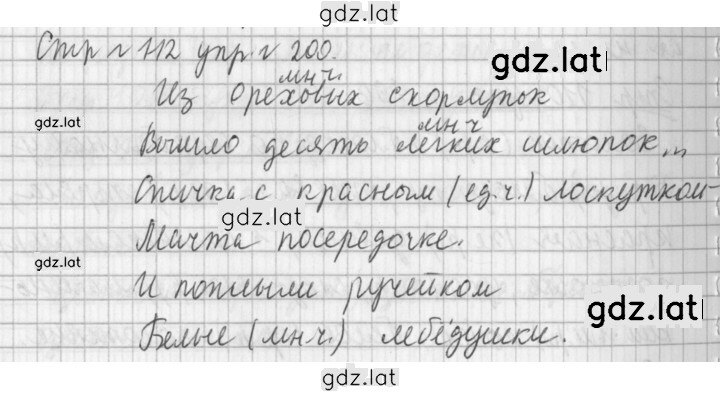 gdz.lat
Стр г 112 упр г 200.
gdz.lat
мн.ч.
Из ореховых скорлупок
gdz.lat
мн ч
Вышло десять легких шлюпок...
Спичка с красным (ед.ч.) лоскутком-
gdz.lat
Мачта посередочке.
gdz.lat
И поплыли ручейком
gdz.lat
Белые (мн.ч.) лебёдушки.
gdz.lat